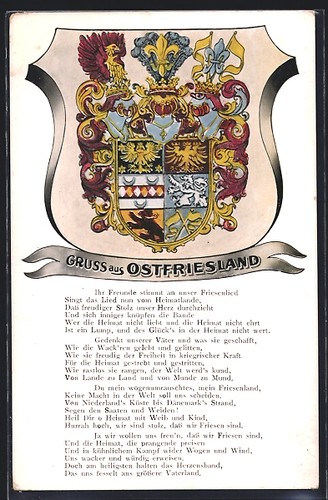 GRUSS aus OSTFRIESLAND
Ihr Freunde stimmt an unser Friesenlied
Singt das Lied nun vom Heimatlande,
Daß freudiger Stolz unser Herz durchzieht
Und sich inniger knüpfen die Bande
Wer die Heimat nicht liebt und die Heimat nicht ehrt
Ist ein Lump, und des Glück's in der Heimat nicht wert.
Gedenkt unserer Väter und was sie geschafft,
Wie die Wack'ren gelebt und gelitten,
Wie sie freudig der Freiheit in kriegrischer Kraft
Für die Heimat gestrebt und gestritten,
Wie rastlos sie rangen, der Welt werd's kund,
Von Lande zu Land und von Munde zu Mund.
Du mein wogenumrauschtes, mein Friesenland,
Keine Macht in der Welt soll uns scheiden.
Von Niederland's Küste bis Dänemark's Strand,
Segen den Saaten und Weiden!
Heil Dir o Heimat mit Weib und Kind,
Hurrah hoch, wir sind stolz, daß wir Friesen sind.
Ja wir wollen uns freu'n, daß wir Friesen sind,
Und die Heimat, die prangende preisen
Und in kühnlichem Kampf wider Wogen und Wind,
Uns wacker und würdig erweisen.
Doch am heiligsten halten das Herzensband,
Das uns fesselt ans größere Vaterland.